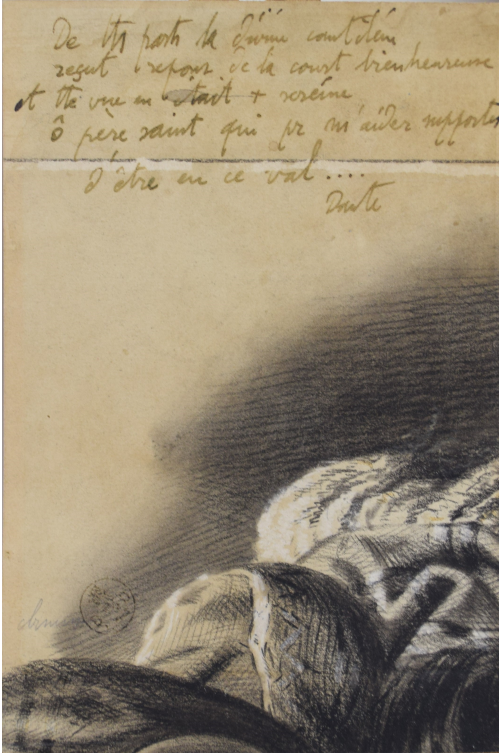 De tts parts la divine cantilène
reçut réponse de la court bienheureuse
et tte vue en était + sereine
ô père saint qui pr m'aider supportes
d'être en ce val ....
Dante